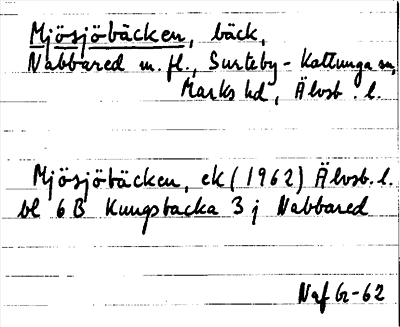 Mjösjöbäcken, bäck,
Nabbared m. fl., Surteby-Kattunga sn,
Marks hd, Älvsb. l.
Mjösjöbäcken, ek (1962) Älvsb. l.
bl 6B Kungsbacka 3 j Nabbared
Naf Gr-62